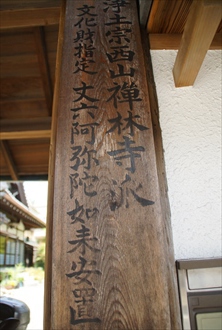 浄土宗西山禅林寺派
文化財指定 丈六阿弥陀如来安置